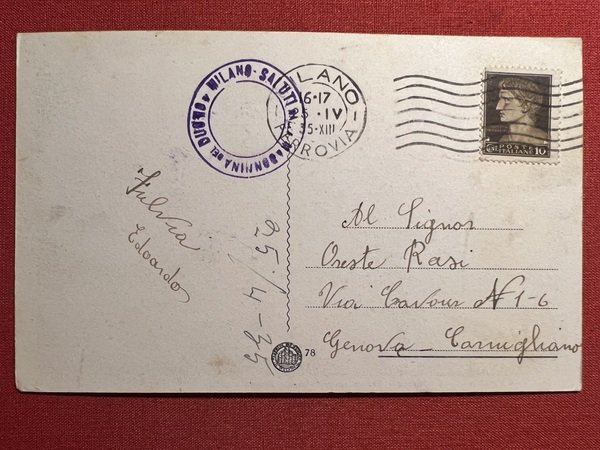 MILANO - SALUTI DALLA MADONNINA DEL DUOMO
MILANO
16·17
5·IV
35-XIII
FERROVIA
POSTE
ITALIANE
10
Fulvia
Edoardo
25/4-35
Al Signor
Oreste Rasi
Via Cavour N 1-6
Genova - Cornigliano
78